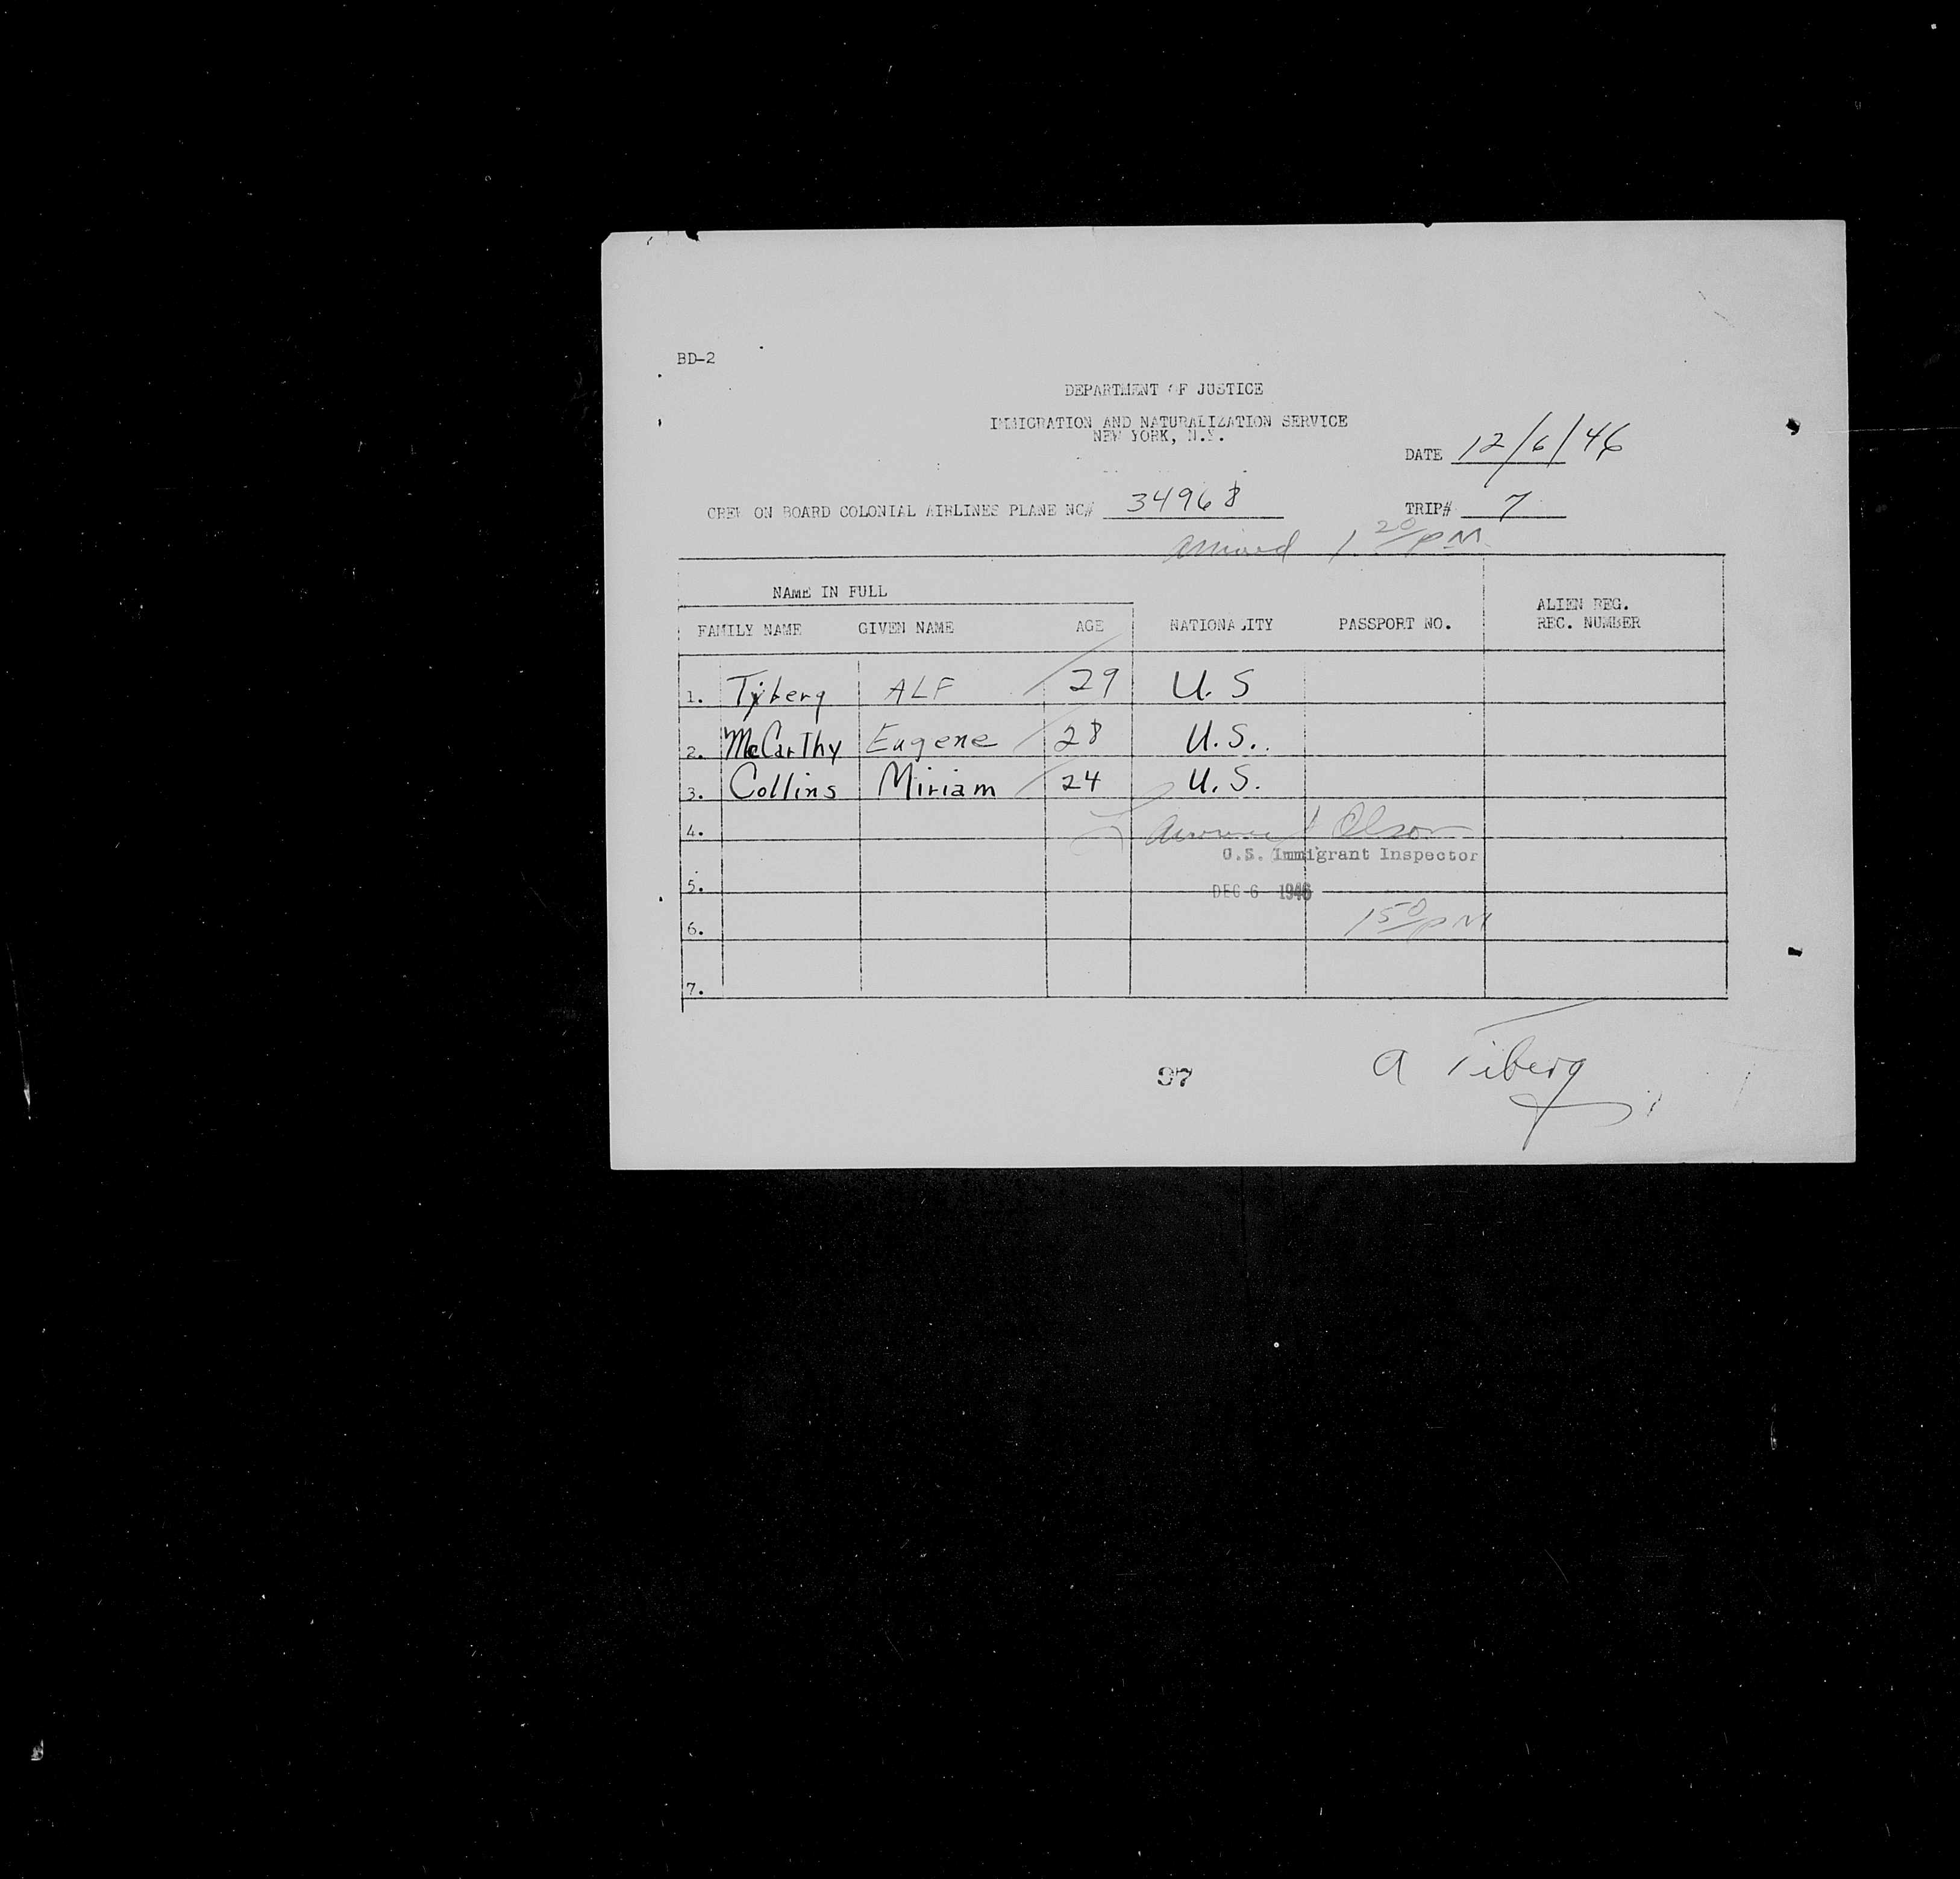 BD-2
DEPARTMENT OF JUSTICE
IMMIGRATION AND NATURALIZATION SERVICE
NEW YORK, N.Y.
DATE 12/6/46
CREW ON BOARD COLONIAL AIRLINES PLANE NC# 34968 TRIP# 7
arrived 1 20/PM
NAME IN FULL
FAMILY NAME GIVEN NAME AGE NATIONALITY PASSPORT NO. ALIEN REG. REC. NUMBER
1. Tiberg ALF 29 U.S
2. McCarthy Eugene 28 U.S.
3. Collins Miriam 24 U.S.
4. Olson
U.S. Immigrant Inspector
5.
DEC 6 1946
6. 150/PM
7.
97
A Tiberg